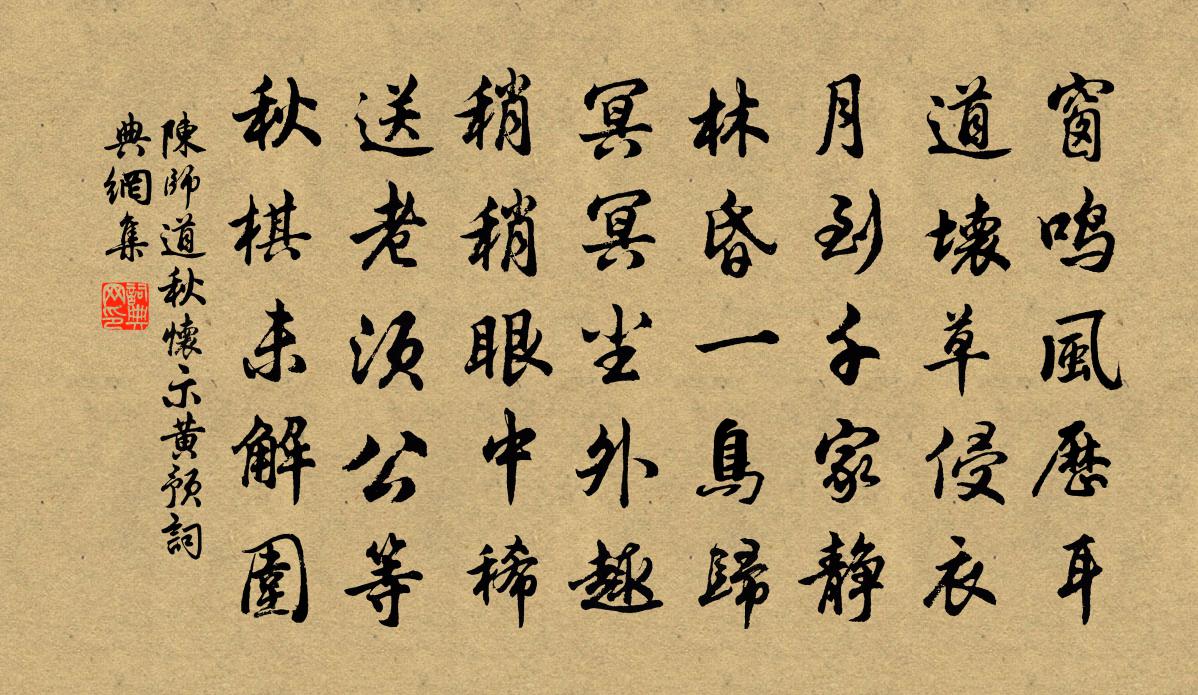 窗鸣風歷耳
道壞草侵衣
月到千家静
林昏一鳥歸
冥冥尘外趣
稍稍眼中稀
送老须公等
秋棋未解圍
陳師道秋懷示黄預詞
典網集
詞典
网印